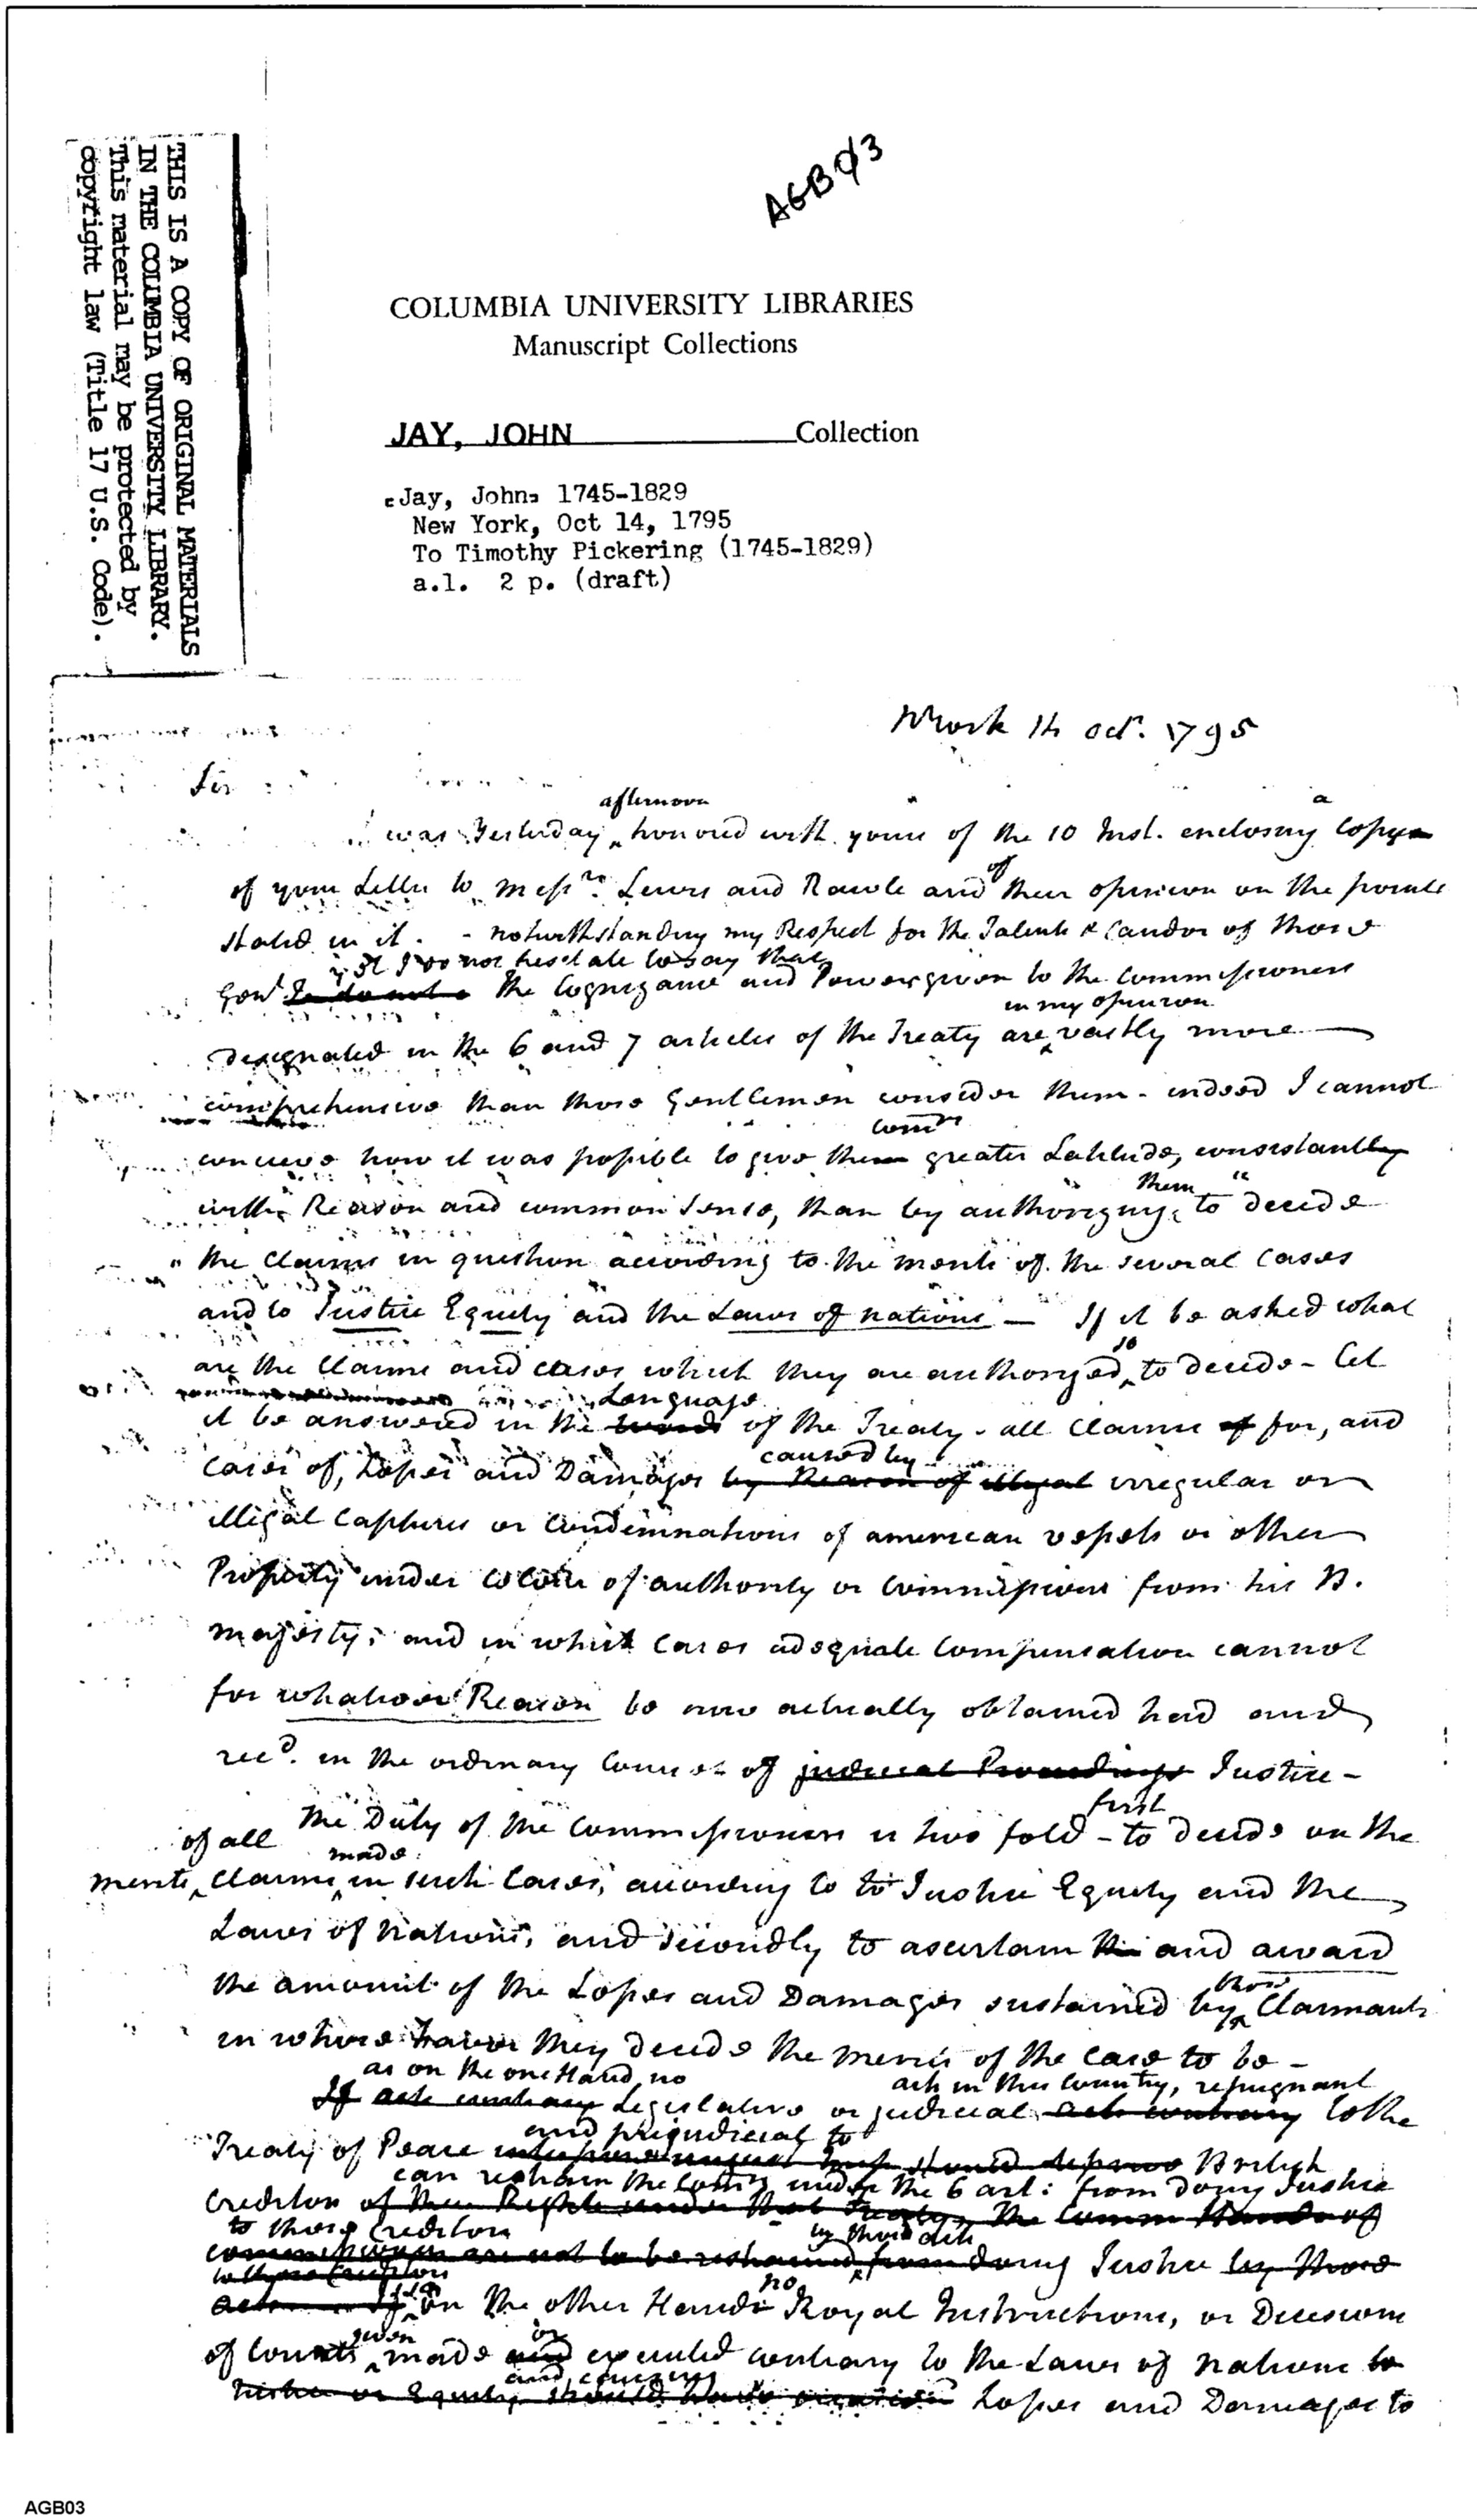 AGB03
THIS IS A COPY OF ORIGINAL MATERIALS
IN THE COLUMBIA UNIVERSITY LIBRARY.
This material may be protected by
copyright law (Title 17 U.S. Code).
COLUMBIA UNIVERSITY LIBRARIES
Manuscript Collections
JAY, JOHN Collection
[Jay, John] 1745-1829
New York, Oct 14, 1795
To Timothy Pickering (1745-1829)
a.l. 2 p. (draft)
NYork 14 Octr. 1795
Sir
afternoon a
was Yesterday honored with yours of the 10 Inst. enclosing Copy
of your Letter to Messrs. Lewis and Rawle and of their opinion on the points
stated in it. - notwithstanding my Respect for the Talents & Candor of those
I do not hesitate to say that
Gent I do not the Cognizance and Power given to the Commissioners
in my opinion
designated in the 6 and 7 articles of the Treaty are vastly more
comprehensive than those Gentlemen consider them - indeed I cannot
comrs
conceive how it was possible to give them greater Latitude, consistantly
them
with Reason and common Sense, than by authorizing to "decide
" the Claims in question according to the merits of the several Cases
and to Justice Equity and the Laws of nations — If it be asked what
so
are the Claims and cases which they are authorized to decide - let
Language
it be answered in the words of the Treaty - all Claims of for, and
caused by
Cases of, Losses and Damages by Reason of illegal irregular or
illegal Captures or Condemnations of american vessels or other
Property under colour of authority or Commissions from his B.
majesty; and in which Cases adequate Compensation cannot
for whatever Reason be now actually obtained had and
recd. in the ordinary Course of judicial Proceedings Justice -
first
The Duty of the Commissioners is two fold - to decide on the
of all made
merits Claims in such Cases, according to to Justice Equity and the
Laws of Nations, and secondly to ascertain the and award
those
the amount of the Losses and Damages sustained by Claimants
in whose Favor they decide the merits of the Case to be -
as on the one Hand, no acts in this Country, repugnant
If acts contrary Legislative or judicial acts contrary to the
and prejudicial to
Treaty of Peace should deprive British
can restrain the Comrs under the 6 art: from doing Justice
Creditors of their Rights under that Treaty, The Hands of
to those Creditors by those acts
commissioners are not to be restrained from doing Justice by those
to those Creditors
no
acts If on the other Hand Royal Instructions, or Decisions
given or
of Courts made and executed contrary to the Laws of nations to
and causing
Justice or Equity, should have occasioned Losses and Damages to
AGB03